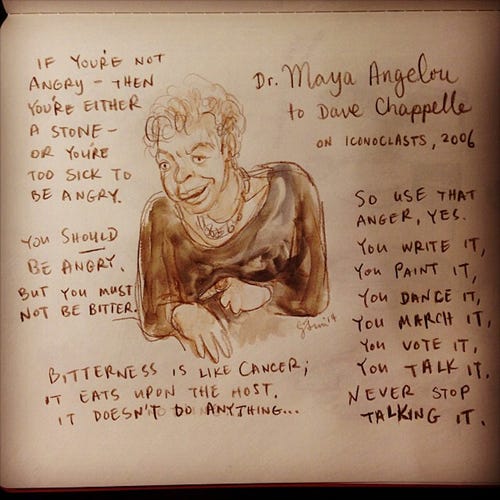 IF YOU'RE NOT
ANGRY – THEN
YOU'RE EITHER
A STONE –
OR YOU'RE
TOO SICK TO
BE ANGRY.
YOU SHOULD
BE ANGRY.
BUT YOU MUST
NOT BE BITTER.
BITTERNESS IS LIKE CANCER;
IT EATS UPON THE HOST.
IT DOESN'T DO ANYTHING...
Dr. Maya Angelou
to Dave Chappelle
ON ICONOCLASTS, 2006
SO USE THAT
ANGER, YES.
YOU WRITE IT,
YOU PAINT IT,
YOU DANCE IT,
YOU MARCH IT,
YOU VOTE IT,
YOU TALK IT.
NEVER STOP
TALKING IT.